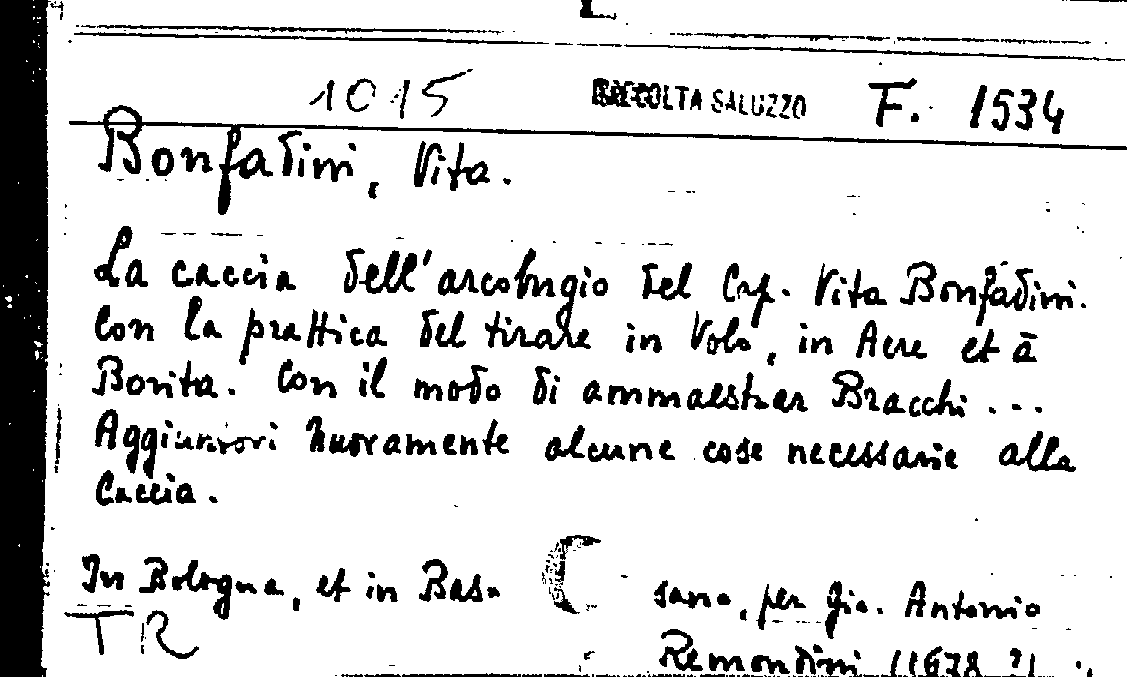 1015 RACCOLTA SALUZZO F. 1534
Bonfadini, Vita.
La caccia dell'arcobugio del Cap. Vita Bonfadini.
Con la prattica del tirare in Volo, in Aere et à
Borita. Con il modo di ammaestrar Bracchi ...
Aggiuntovi nuovamente alcune cose necessarie alla
Caccia.
In Bologna, et in Bassano, per Gio. Antonio
TR Remondini (1678 ?)